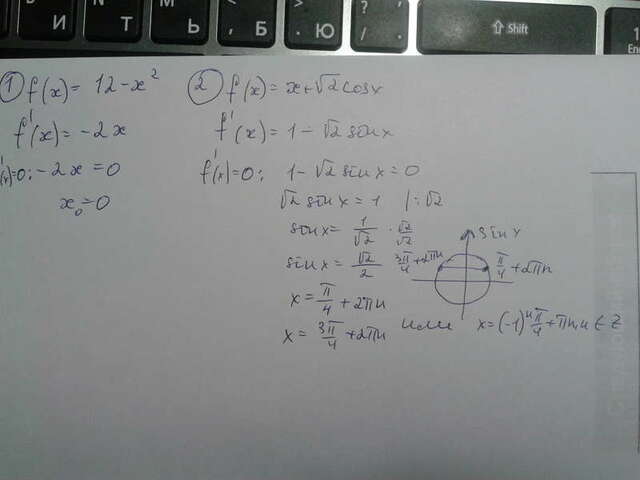 И Т Ь < , Б > . Ю ? / ⇧ Shift
① f(x) = 12 - x²
f'(x) = -2x
f'(x)=0; -2x = 0
x₀ = 0
② f(x) = x + √2 cosx
f'(x) = 1 - √2 sinx
f'(x)=0; 1 - √2 sinx = 0
√2 sinx = 1 | : √2
sinx = 1/√2 · √2/√2
sinx = √2/2
x = π/4 + 2πn
x = 3π/4 + 2πn или x = (-1)ⁿ π/4 + πn, n ∈ Z
sinx
3π/4 + 2πn
π/4 + 2πn